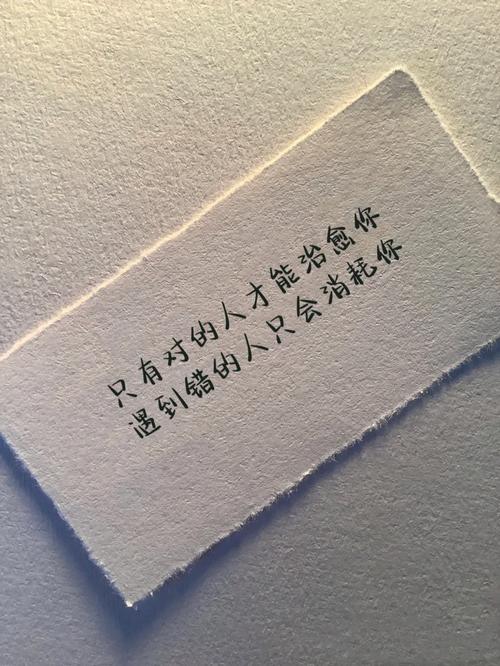 只有对的人才能治愈你
遇到错的人只会消耗你